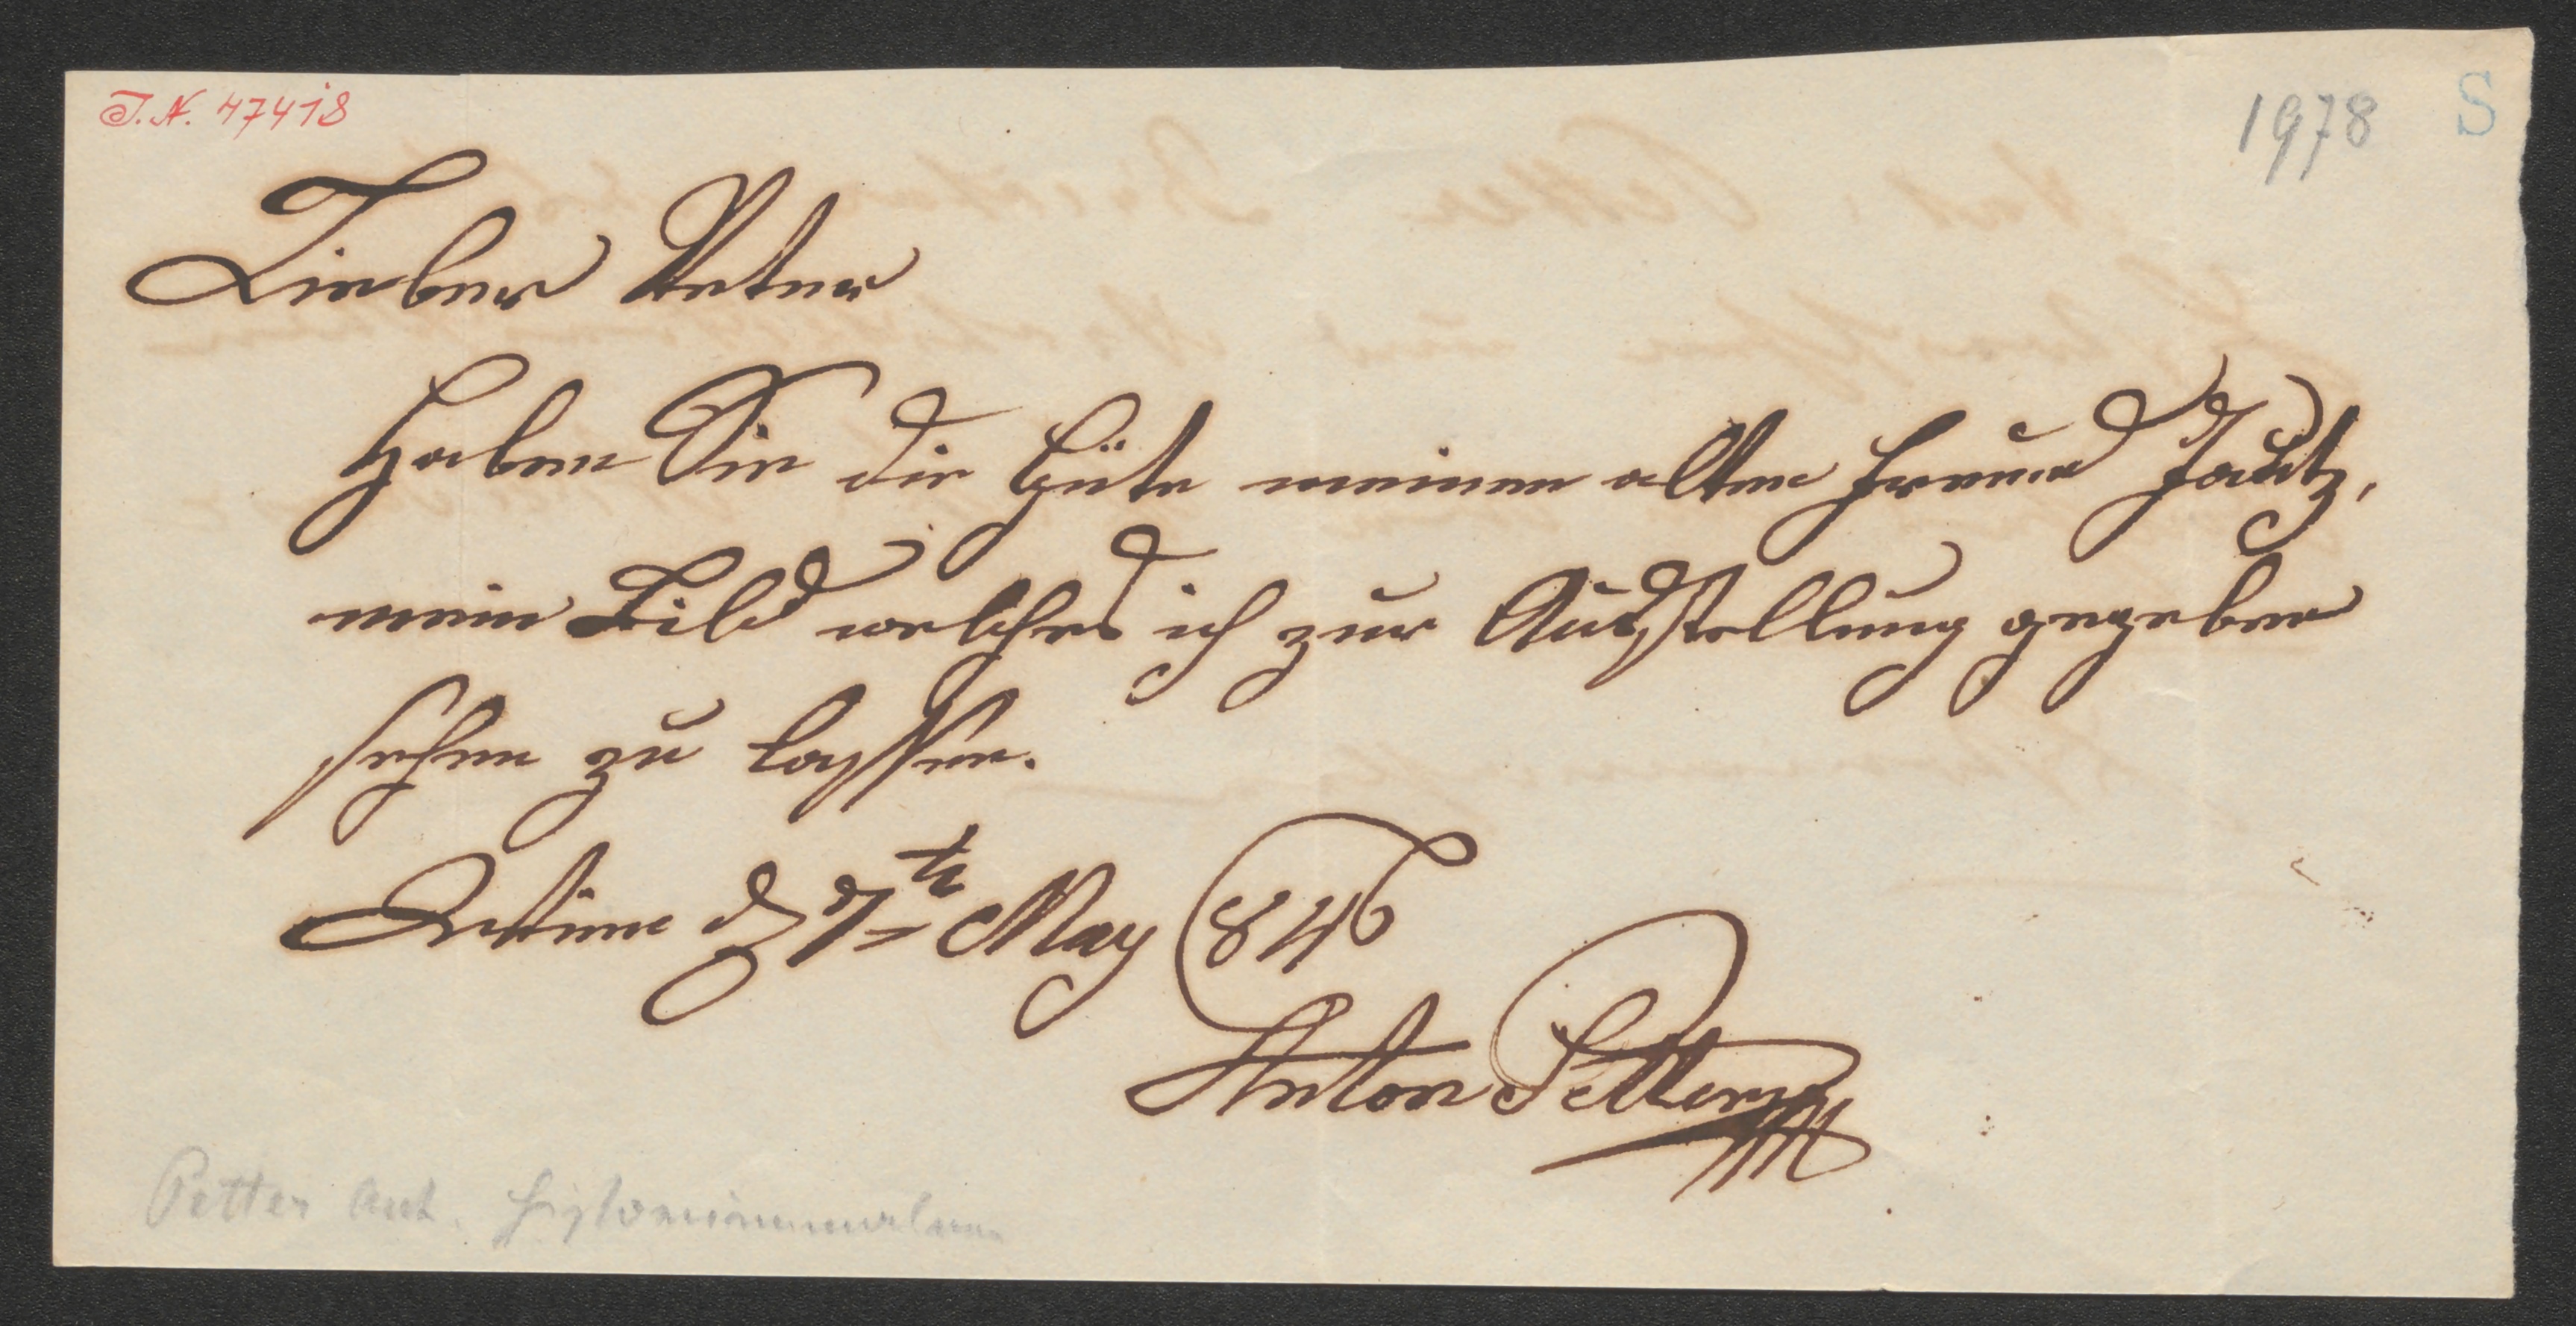 I.N. 47418
1978 S
Lieber Vater
Haben Sie die Güte meinen alten Freund Jautz,
mein Bild welches ich zur Ausstellung gegeben
sehen zu lassen.
d 7te May 846
Anton Petter
Petter Ant. Historienmaler